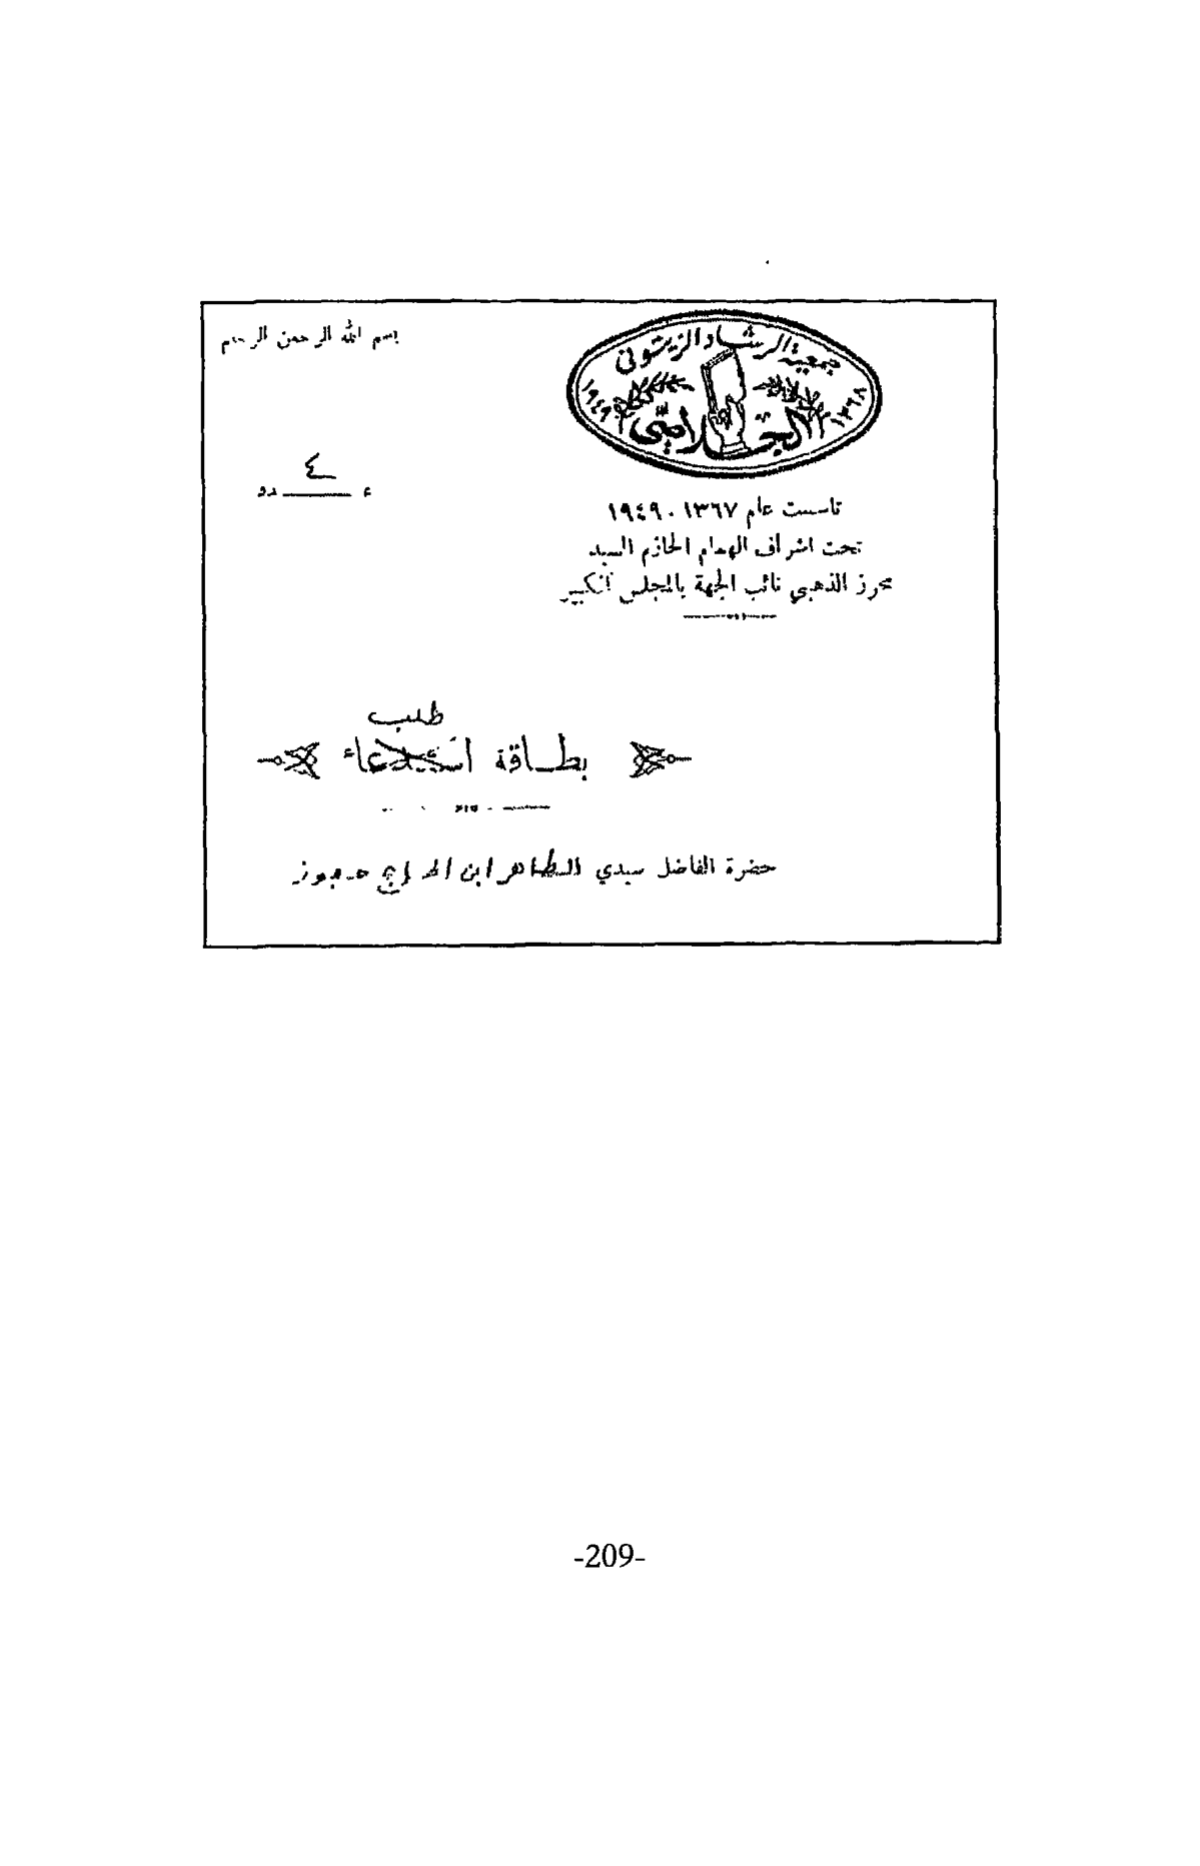 بسم الله الرحمن الرحيم
جمعية الرشاد الزيتوني
١٣٦٨
١٩٤٩
تاسست عام ١٣٦٧ . ١٩٤٩
تحت اشراف الهمام الحازم السيد
محرز الذهبي نائب الجهة بالمجلس الكبير
٤
عدد
طلب
بطاقة استدعاء
حضرة الفاضل سيدي الطاهر ابن الحاج
-209-